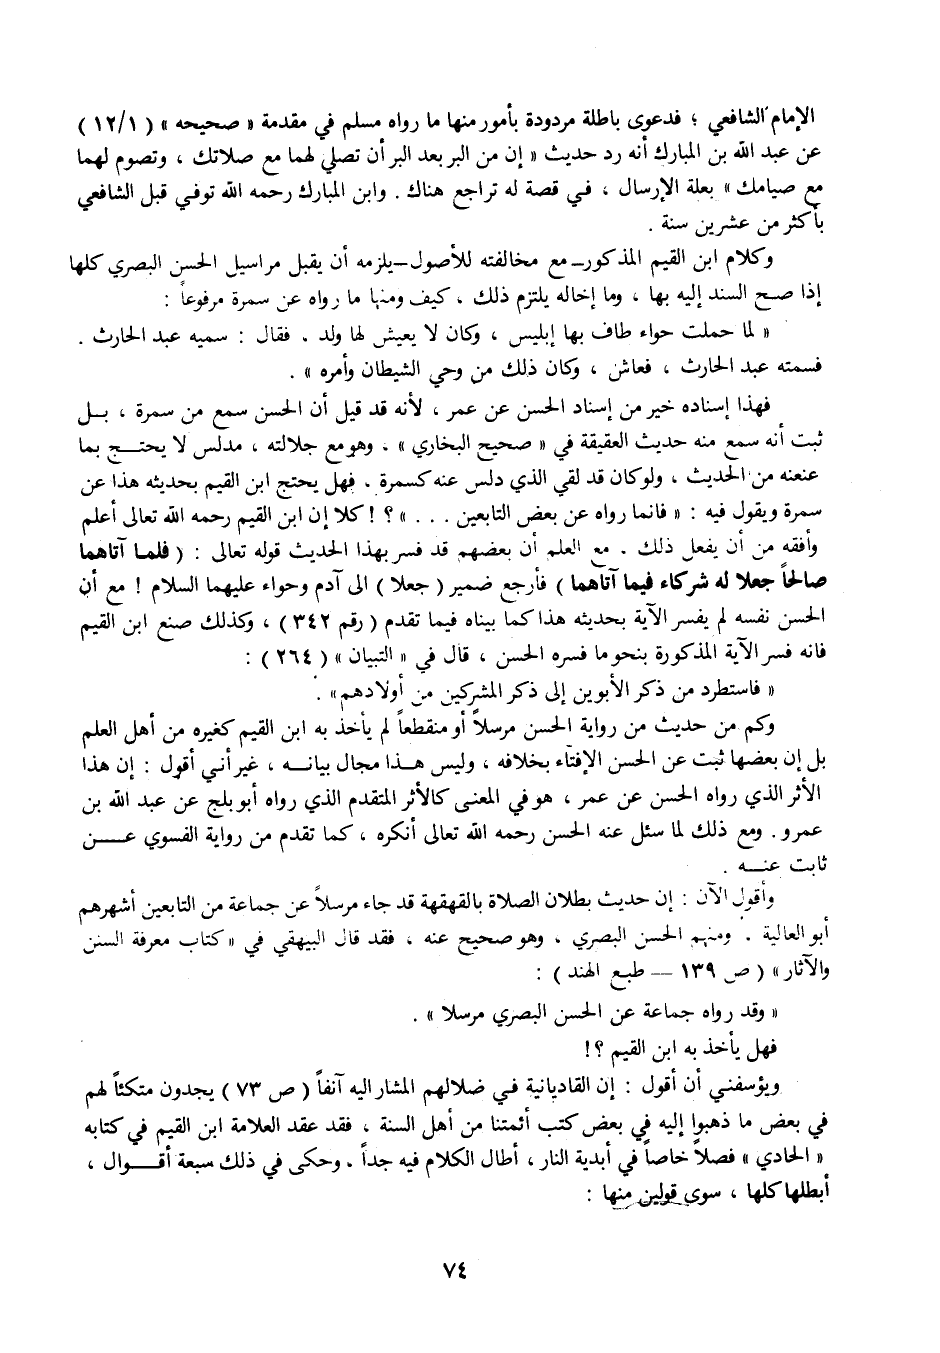 الإمام الشافعي ؛ فدعوى باطلة مردودة بأمور منها ما رواه مسلم في مقدمة « صحيحه » ( ١٢/١ )
عن عبد الله بن المبارك أنه رد حديث « إن من البر بعد البر أن تصلي لهما مع صلاتك ، وتصوم لهما
مع صيامك » بعلة الإرسال ، في قصة له تراجع هناك . وابن المبارك رحمه الله توفي قبل الشافعي
بأكثر من عشرين سنة .
وكلام ابن القيم المذكور – مع مخالفته للأصول – يلزمه أن يقبل مراسيل الحسن البصري كلها
إذا صح السند إليه بها ، وما إخاله يلتزم ذلك ، كيف ومنها ما رواه عن سمرة مرفوعاً :
« لما حملت حواء طاف بها إبليس ، وكان لا يعيش لها ولد . فقال : سميه عبد الحارث .
فسمته عبد الحارث ، فعاش ، وكان ذلك من وحي الشيطان وأمره » .
فهذا إسناده خير من إسناد الحسن عن عمر ، لأنه قد قيل أن الحسن سمع من سمرة ، بل
ثبت أنه سمع منه حديث العقيقة في « صحيح البخاري » . وهو مع جلالته ، مدلس لا يحتج بما
عنعنه من الحديث ، ولو كان قد لقي الذي دلس عنه كسمرة . فهل يحتج ابن القيم بحديثه هذا عن
سمرة ويقول فيه : « فانما رواه عن بعض التابعين . . . » ؟ ! كلا إن ابن القيم رحمه الله تعالى أعلم
وأفقه من أن يفعل ذلك . مع العلم أن بعضهم قد فسر بهذا الحديث قوله تعالى : ( فلما آتاهما
صالحاً جعلا له شركاء فيما آتاهما ) فأرجع ضمير ( جعلا ) الى آدم وحواء عليهما السلام ! مع أن
الحسن نفسه لم يفسر الآية بحديثه هذا كما بيناه فيما تقدم ( رقم ٣٤٢ ) ، وكذلك صنع ابن القيم
فانه فسر الآية المذكورة بنحو ما فسره الحسن ، قال في « التبيان » ( ٢٦٤ ) :
« فاستطرد من ذكر الأبوين إلى ذكر المشركين من أولادهم » .
وكم من حديث من رواية الحسن مرسلاً أو منقطعاً لم يأخذ به ابن القيم كغيره من أهل العلم
بل إن بعضها ثبت عن الحسن الإفتاء بخلافه ، وليس هذا مجال بيانه ، غير أني أقول : إن هذا
الأثر الذي رواه الحسن عن عمر ، هو في المعنى كالأثر المتقدم الذي رواه أبو بلج عن عبد الله بن
عمرو . ومع ذلك لما سئل عنه الحسن رحمه الله تعالى أنكره ، كما تقدم من رواية الفسوي عن
ثابت عنه .
وأقول الآن : إن حديث بطلان الصلاة بالقهقهة قد جاء مرسلاً عن جماعة من التابعين أشهرهم
أبو العالية . ومنهم الحسن البصري ، وهو صحيح عنه ، فقد قال البيهقي في « كتاب معرفة السنن
والآثار » ( ص ١٣٩ – طبع الهند ) :
« وقد رواه جماعة عن الحسن البصري مرسلا » .
فهل يأخذ به ابن القيم ؟!
ويؤسفني أن أقول : إن القاديانية في ضلالهم المشار اليه آنفاً ( ص ٧٣ ) يجدون متكئاً لهم
في بعض ما ذهبوا إليه في بعض كتب أئمتنا من أهل السنة ، فقد عقد العلامة ابن القيم في كتابه
« الحادي » فصلاً خاصاً في أبدية النار ، أطال الكلام فيه جداً . وحكى في ذلك سبعة أقوال ،
أبطلها كلها ، سوى قولين منها :
٧٤